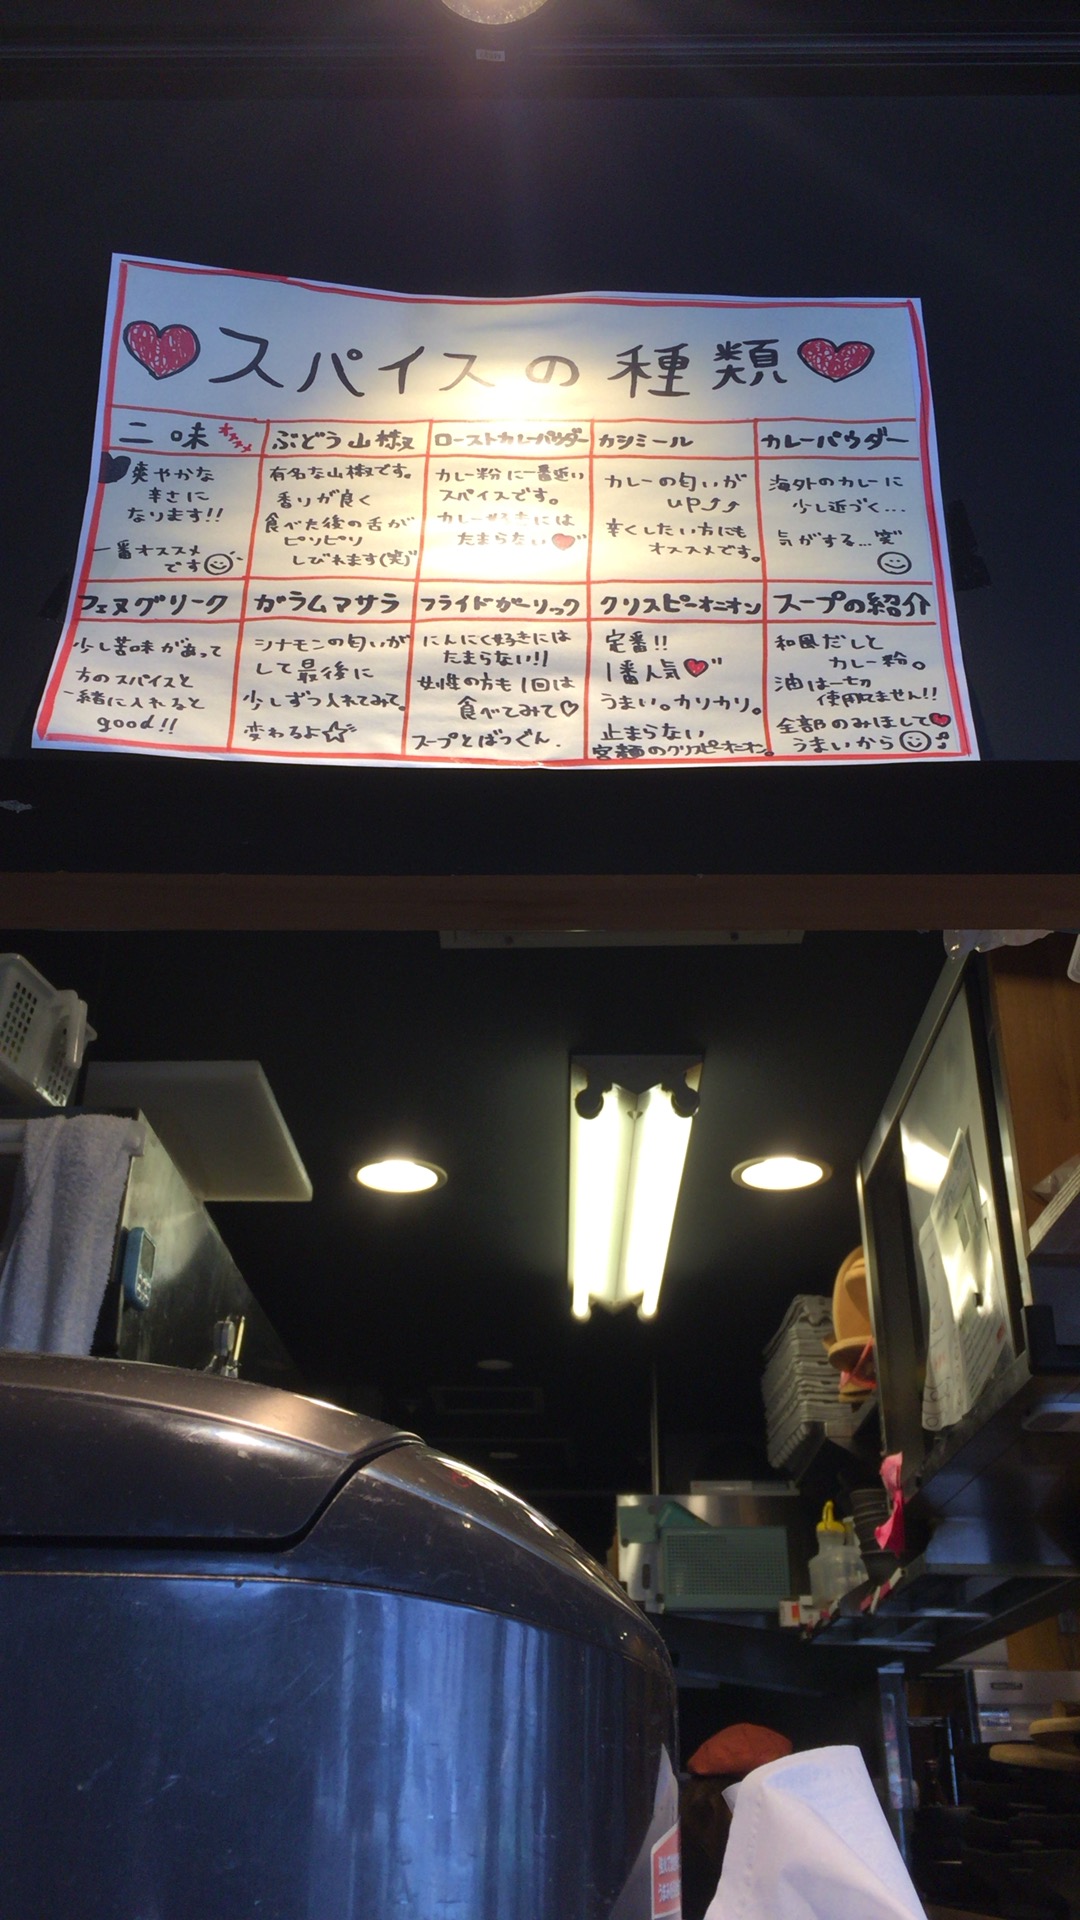 スパイスの種類
二味 オススメ
爽やかな
辛さに
なります!!
一番オススメ
です
ぶどう山椒
有名な山椒です。
香りが良く
食べた後の舌が
ピリピリ
しびれます(笑)
ローストカレーパウダー
カレー粉に一番近い
スパイスです。
カレー好きには
たまらない
カシミール
カレーの匂いが
UP⤴⤴
辛くしたい方にも
オススメです。
カレーパウダー
海外のカレーに
少し近づく...
気がする...笑
フェヌグリーク
少し苦味があって
方のスパイスと
一緒に入れると
good!!
ガラムマサラ
シナモンの匂いが
して最後に
少しずつ入れてみて。
変わるよ☆
フライドガーリック
にんにく好きには
たまらない!!
女性の方も1回は
食べてみて♡
スープとばつぐん.
クリスピーオニオン
定番!!
1番人気
うまい。カリカリ。
止まらない
宮麺のクリスピーオニオン。
スープの紹介
和風だしと
カレー粉。
油は一切
使用してません!!
全部のみほして
うまいから